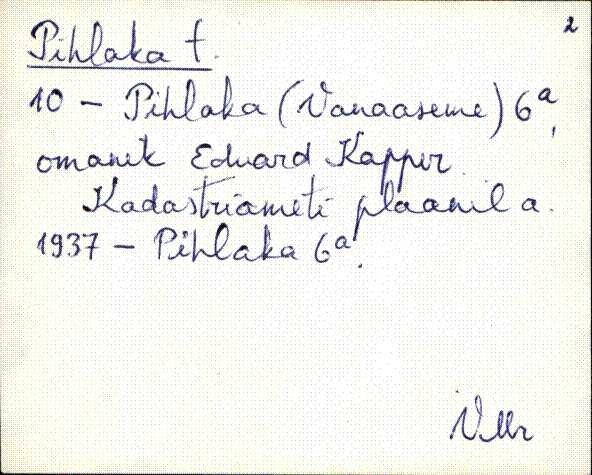 2
Pihlaka t.
10 - Pihlaka (Vanaaseme) 6a,
omanik Eduard Kapper.
Kadastriameti plaanil a.
1937 - Pihlaka 6a.
VMr